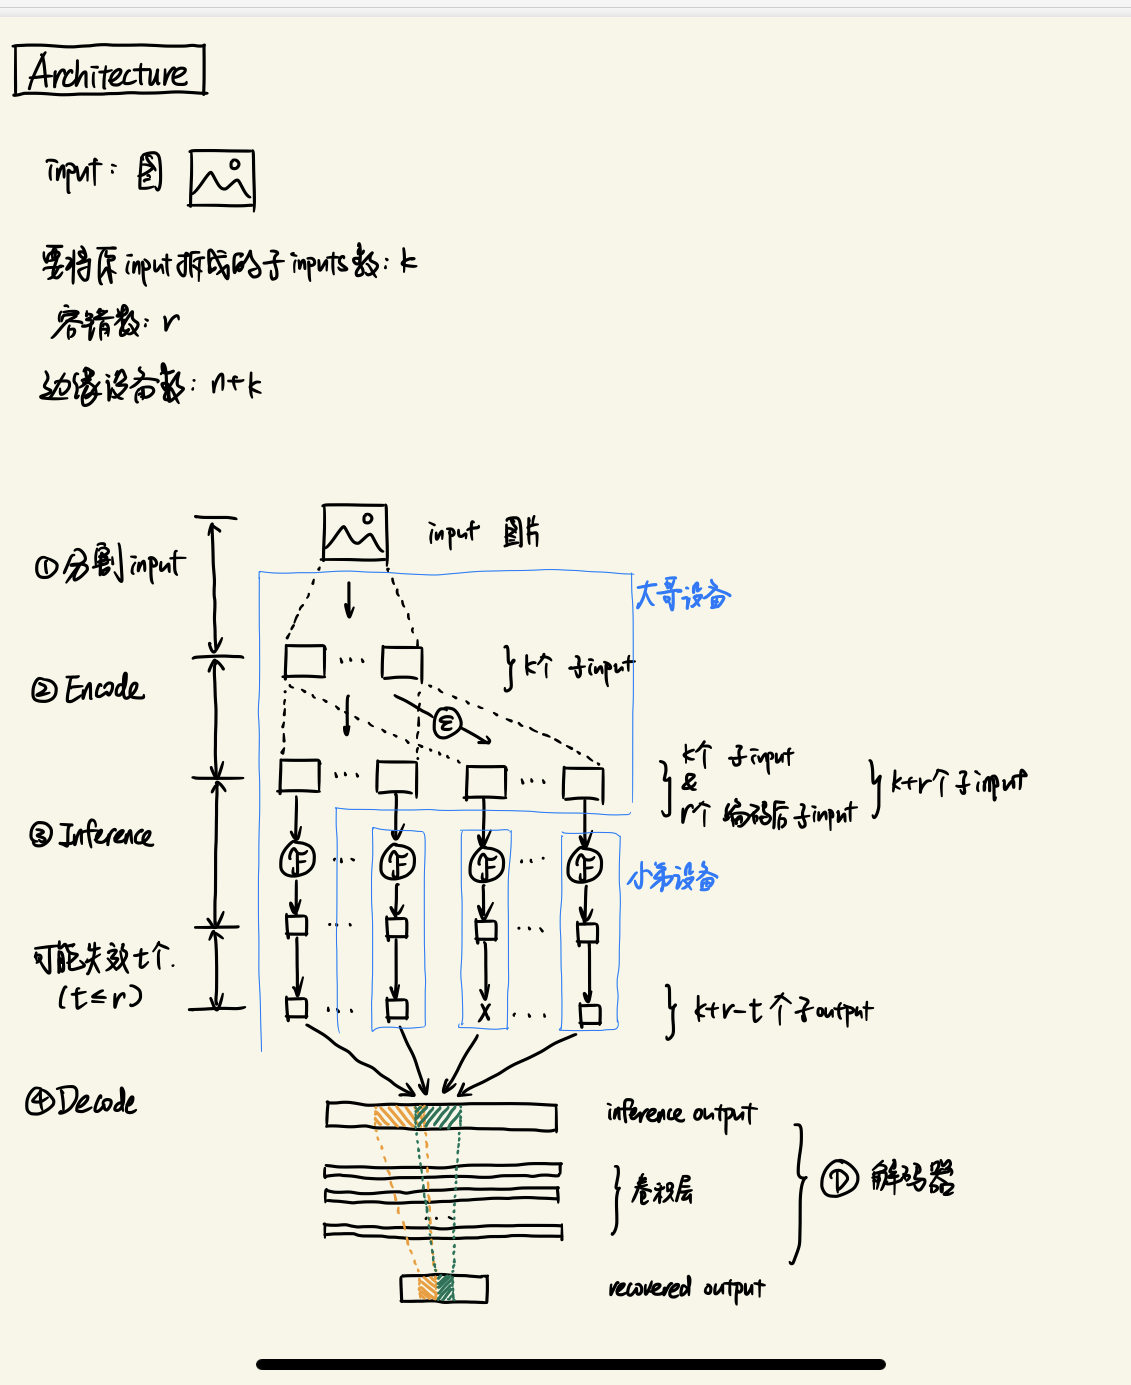 Architecture
input: 图
要将原input拆成的子inputs数: k
容错数: r
边缘设备数: n+k
input 图片
①分割input
大哥设备
k个 子input
②Encode
ε
k个 子input
&
r个 编码后子input
k+r个子input
③Inference
F ... F F ... F
小弟设备
可能失效t个.
(t≤r)
x
k+r-t个子output
④Decode
inference output
卷积层
D 解码器
recovered output